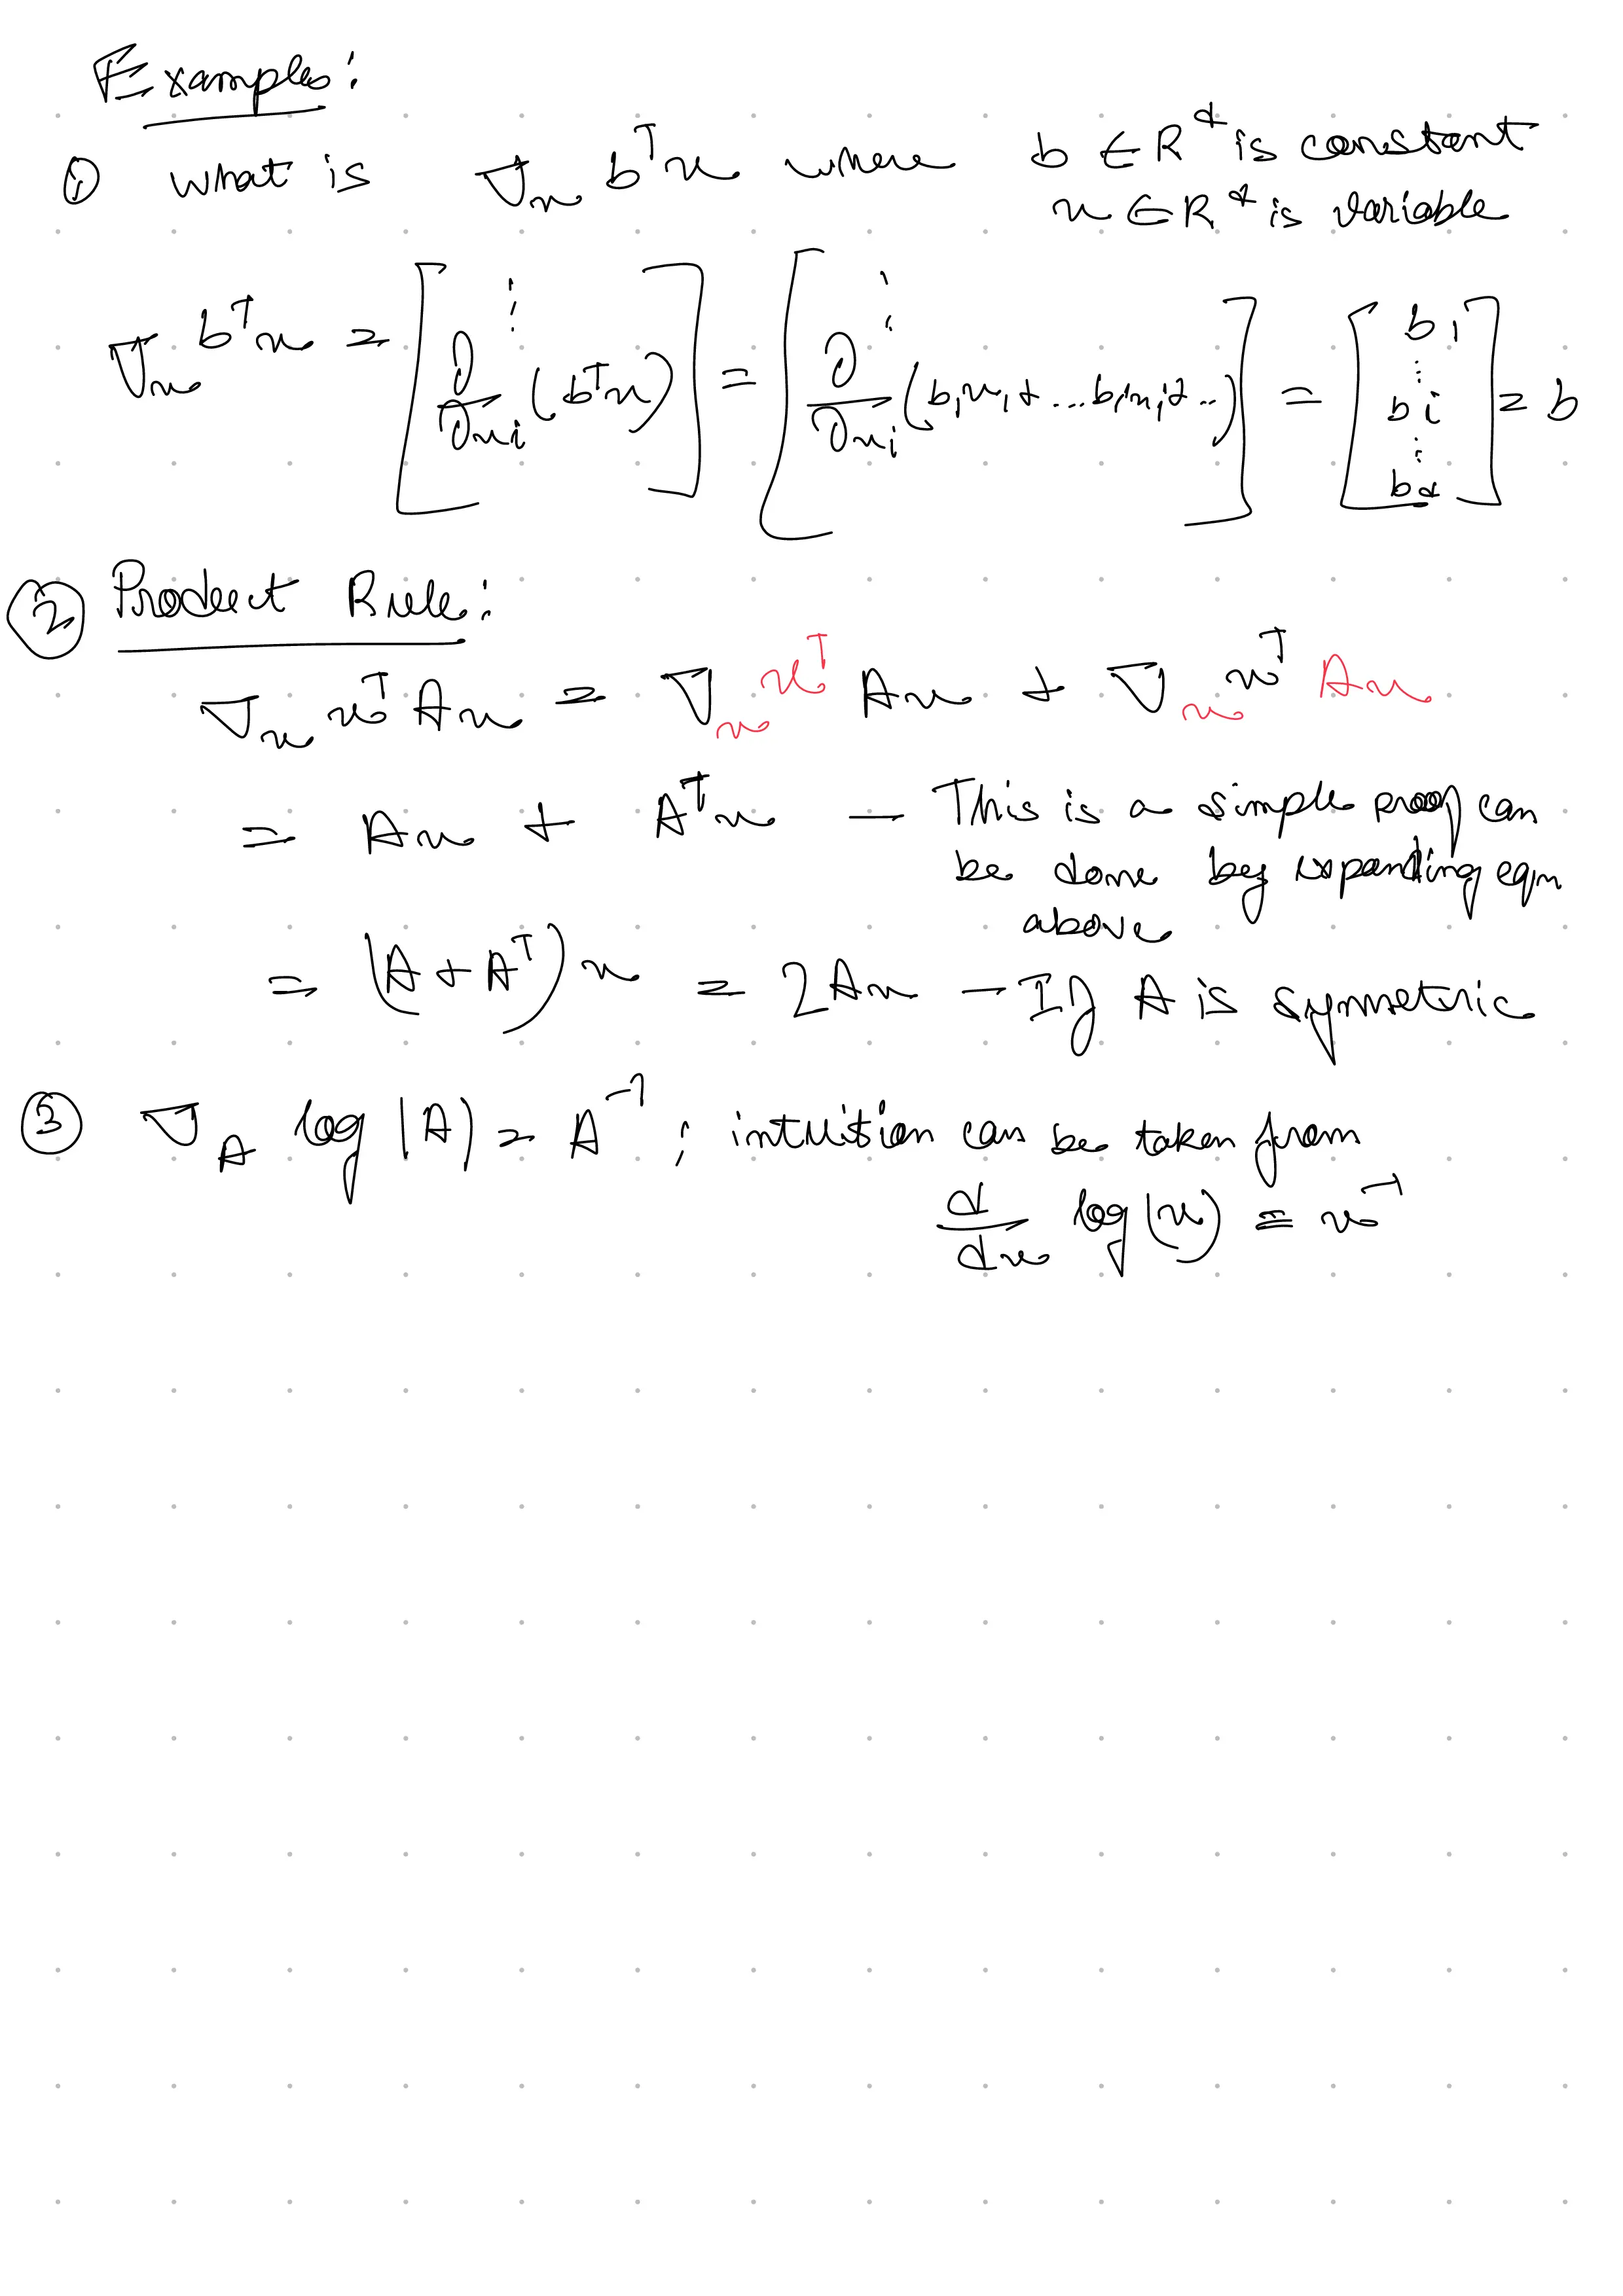 Examples:
① what is ∇ₓ bᵀx where b ∈ Rᵈ is constant
x ∈ Rᵈ is variable
∇ₓ bᵀx = [ ⋮ ∂/∂xᵢ (bᵀx) ] = [ ⋮ ∂/∂xᵢ (b₁x₁+...bᵢxᵢ+..) ] = [ b₁ ⋮ bᵢ ⋮ b_d ] = b
② Product Rule:
∇ₓ xᵀAx = ∇ₓ xᵀ Ax + ∇ₓ xᵀ Ax
= Ax + Aᵀx — This is a simple proof can
be done by expanding eqn
above
= (A + Aᵀ) x = 2Ax — If A is symmetric
③ ∇_A log |A| = A⁻¹ ; intuition can be taken from
d/dx log(x) = x⁻¹